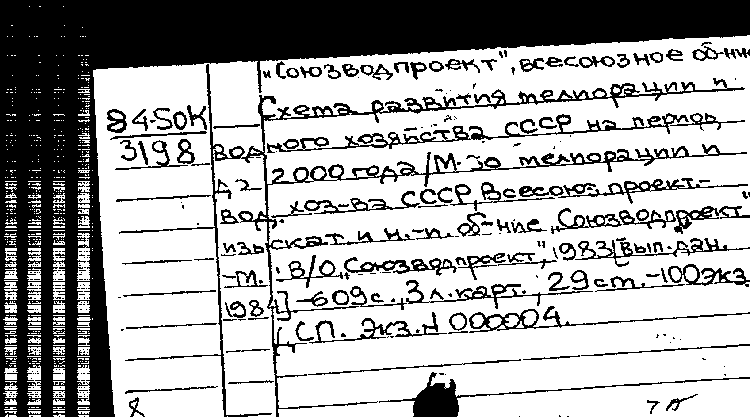 „Союзводпроект", всесоюзное об-ние
84-SOK
3198
Схема развития мелиорации и
водного хозяйства СССР на период
до 2000 года / М-во мелиорации и
вод. хоз-ва СССР, Всесоюз. проект.-
изыскат. и н.-и. об-ние „Союзводпроект"
-М.: В/О „Союзводпроект", 1983 [вып. дан.
1984]. -609 с., 3 л. карт. ; 29 см. -100 экз
, СП. Экз. N 000004.